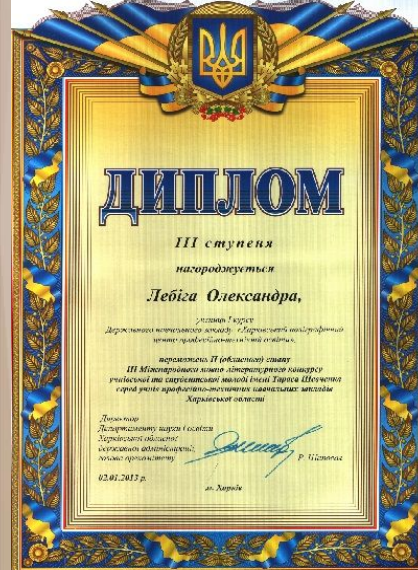 ДИПЛОМ
III ступеня
нагороджується
Лебіга Олександра,
учениця I курсу
Державного навчального закладу «Харківський поліграфічний
центр професійно-технічної освіти»,
переможець II (обласного) етапу
III Міжнародного мовно-літературного конкурсу
учнівської та студентської молоді імені Тараса Шевченка
серед учнів професійно-технічних навчальних закладів
Харківської області
Директор
Департаменту науки і освіти
Харківської обласної
державної адміністрації,
голова оргкомітету
Р. Шаповал
02.01.2013 р.
м. Харків